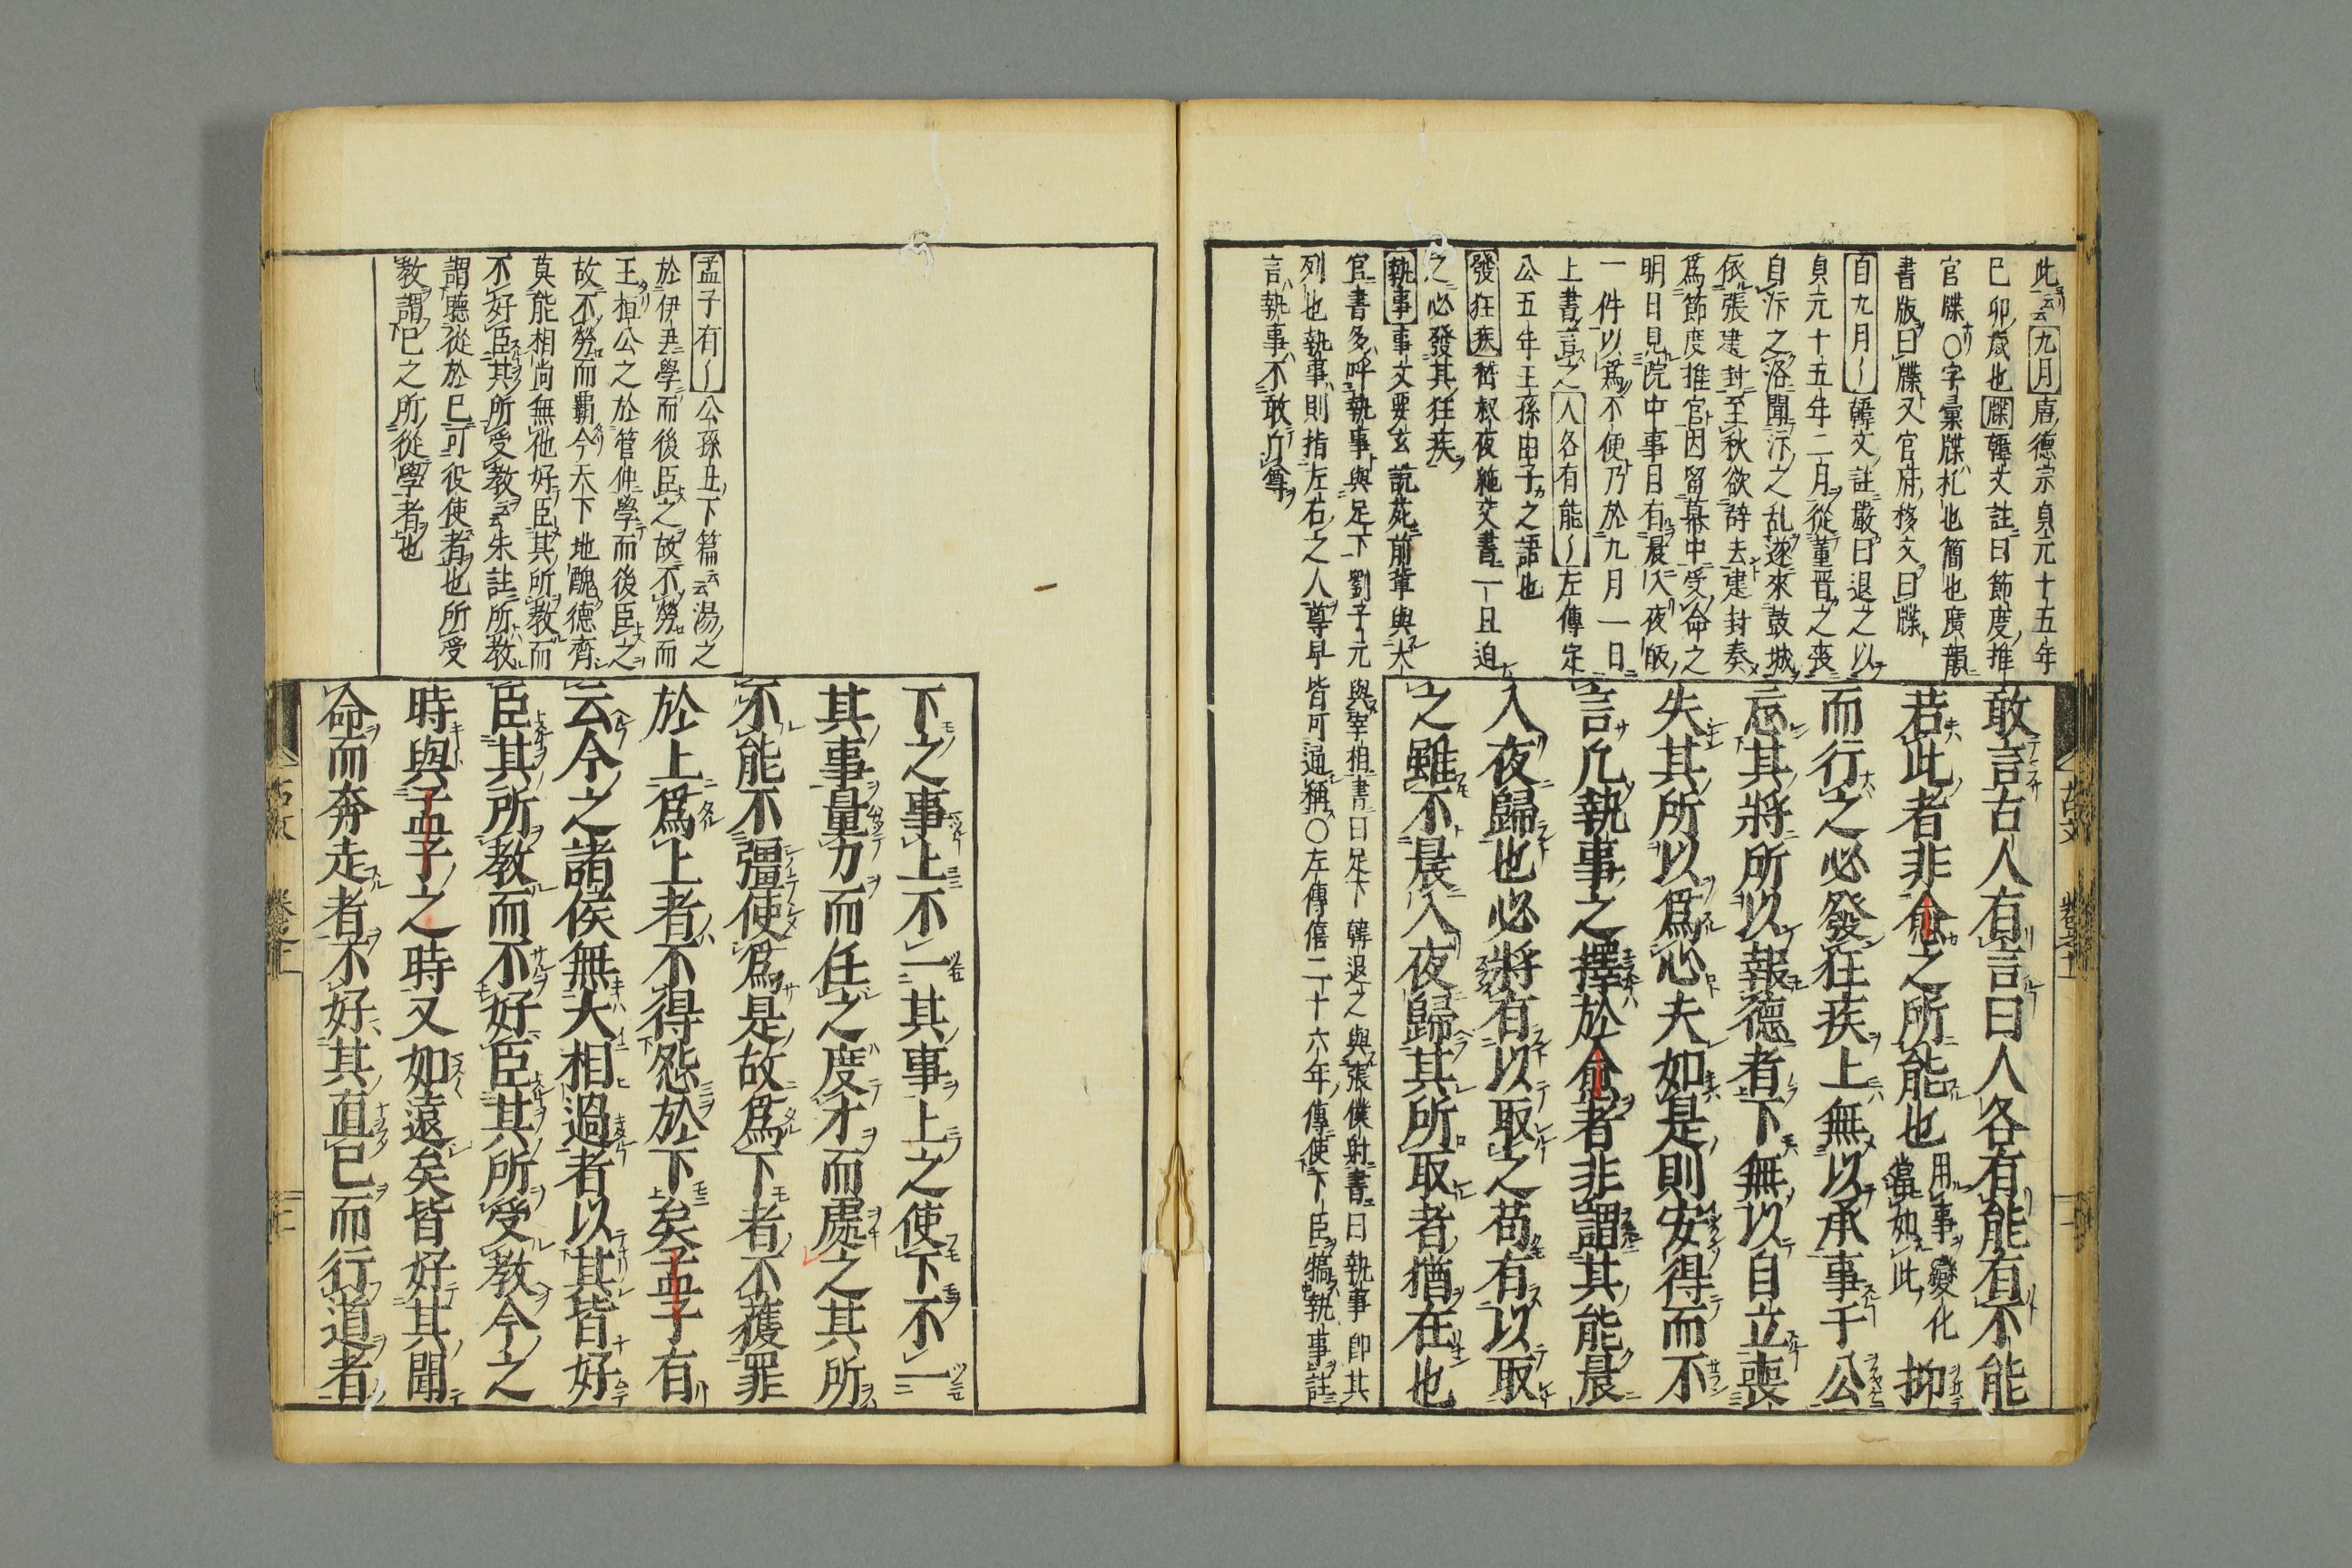 此云云九月唐德宗貞元十五年
巳卯歳也牒韓文註曰節度推
官牒〇字彙牒札也簡也廣韻
書版曰牒又官府移文曰牒
自九月韓文註嚴曰退之以
貞元十五年二月從董晋之喪
自汴之洛聞汴之乱遂來鼓城
依張建封至秋欲辞去建封奏
爲節度推官因留幕中受命之
明日見院中事目有晨入夜皈
一件以爲不便乃於九月一日
上書言之人各有能左傳定
公五年王孫由子之語也
發狂疾嵆叔夜絶交書一旦迫
之必發其狂疾
執事事文要玄說苑前輩與大
官書多呼執事與足下劉子元與宰相書曰足下韓退之與張僕射書曰執事即其
列也執事則指左右之人尊卑皆可通稱〇左傳僖二十六年傳使下臣犒執事註
言執事不敢斥尊
敢言古人有言曰人各有能有不能
若此者非愈之所能也用事變化當如此抑
而行之必發狂疾上無以承事于公
忘其將所以報德者下無以自立喪
失其所以爲心夫如是則安得而不
言凡執事之擇於愈者非謂其能晨
入夜歸也必將有以取之苟有以取
之雖不晨入夜歸其所取者猶在也
古文
孟子有公孫丑下篇云云湯之
於伊尹學而後臣之故不勞而
王桓公之於管仲學而後臣之
故不勞而覇今天下地醜德齊
莫能相尚無他好臣其所教而
不好臣其所受教云云朱註所教
謂聽從於巳可役使者也所受
教謂巳之所從學者也
下之事上不一其事上之使下不一
其事量力而任之度才而處之其所
不能不彊使爲是故爲下者不獲罪
於上爲上者不得怨於下矣孟子有
云今之諸侯無大相過者以其皆好
臣其所教而不好臣其所受教今之
時與孟子之時又如遠矣皆好其聞
命而奔走者不好其直巳而行道者
古文